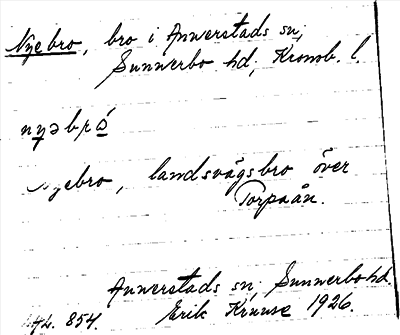 Nyebro, bro i Annerstads sn,
Sunnerbo hd, Kronob. l.
nyəbró
Nyebro, landsvägsbro över
Torpaån.
Annerstads sn, Sunnerbo hd.
Erik Krause 1926.
854.